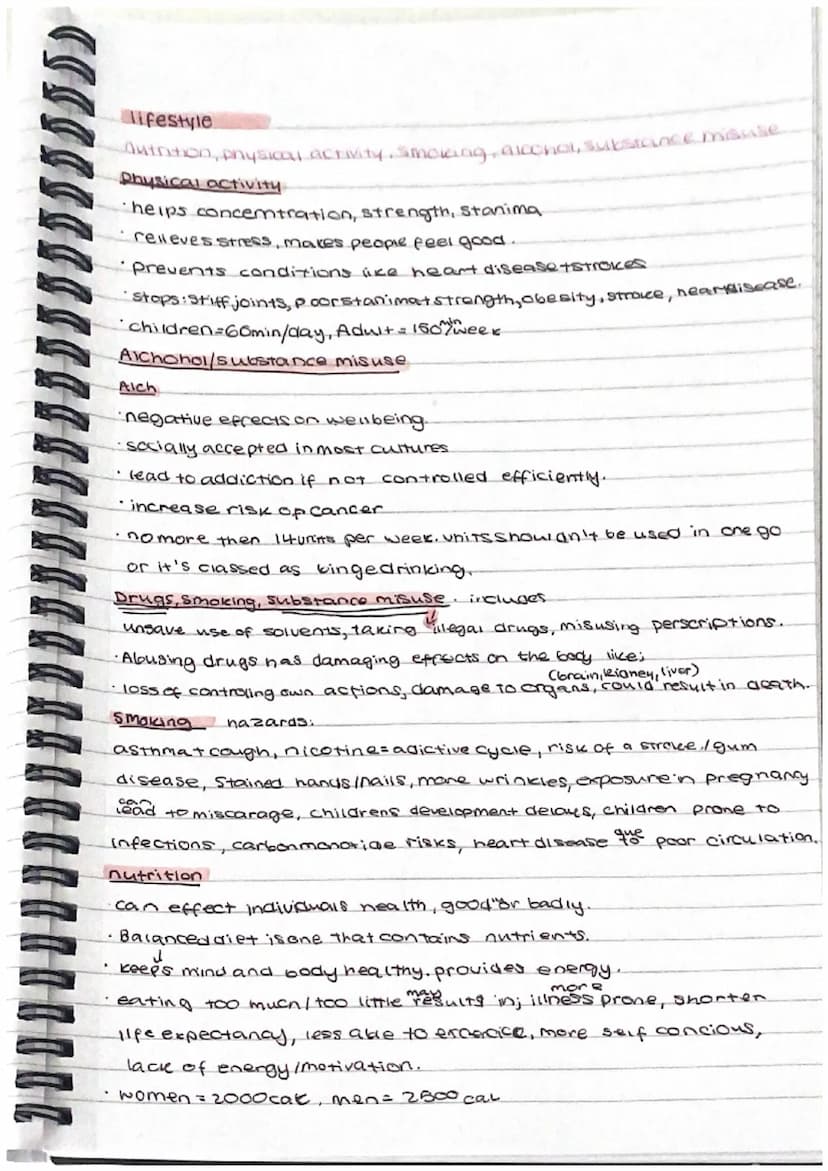 lifestyle
nutrition, physical activity, smoking, alcohol, substance misuse
physical activity
· helps concemtration, strength, stanima
· relieves stress, makes people feel good.
· prevents conditions like heart disease + strokes
· stops: stiff joints, poor stanima + strength, obesity, stroke, heart disease.
· children = 60min/day, Adult = 150min/week
Alchohol/substance misuse
Alch
· negative effects on wellbeing.
· socially accepted in most cultures
· lead to addiction if not controlled efficiently.
· increase risk of cancer
· no more then 14 units per week. units shouldn't be used in one go
or it's classed as bingedrinking.
Drugs, smoking, substance misuse. includes
unsave use of solvents, taking illegal drugs, misusing perscriptions.
· Abusing drugs has damaging effects on the body like;
(brain, kidney, liver)
· loss of controling own actions, damage to organs, could result in death.
Smoking hazards:
asthma + cough, nicotine = adictive cycle, risk of a stroke/gum
disease, stained hands/nails, more wrinkles, exposure in pregnancy
can lead to miscarage, childrens development delays, children prone to
infections, carbonmonoxide risks, heart disease due to poor circulation.
nutrition
· can effect individuals health, good or badly.
· Balanced diet is one that contains nutrients.
· keeps mind and body healthy. provides energy.
· eating too much/too little may results in; illness more prone, shorter
life expectancy, less able to excercice, more self concious,
lack of energy/motivation.
· women = 2000cal, men = 2500 cal